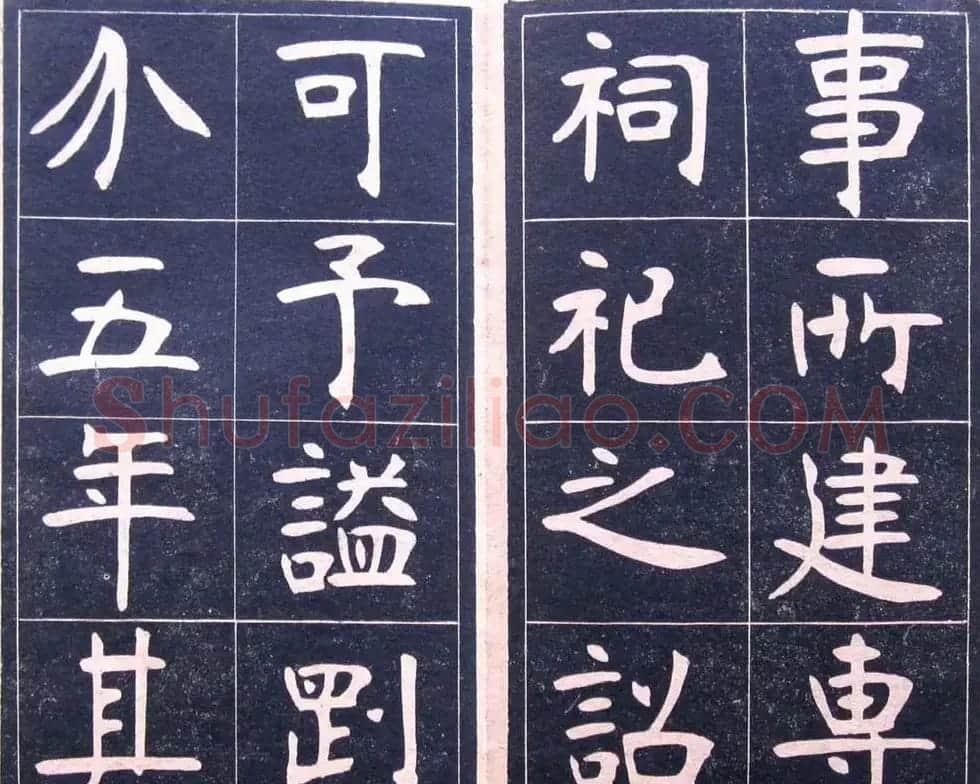 事所建專
祠祀之詔
可予謚剛
介五年其
Shufaziliao.COM